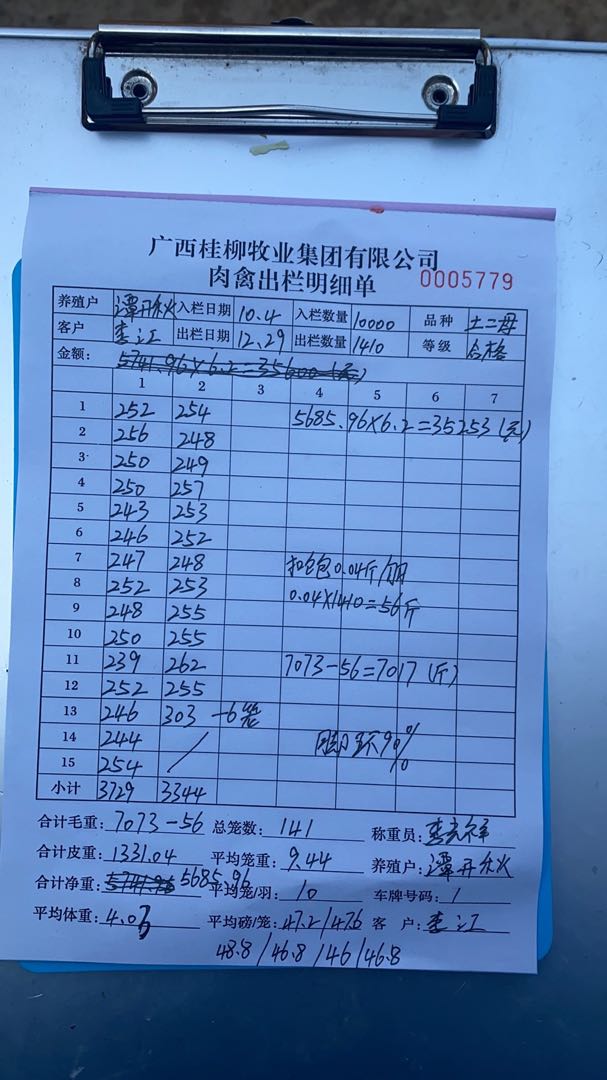 广西桂柳牧业集团有限公司
肉禽出栏明细单 0005779
养殖户 谭开伙 入栏日期 10.4 入栏数量 10000 品种 土二母
客户 李江 出栏日期 12.29 出栏数量 1410 等级 合格
金额: 5741.96×6.2=35600(元)
1 2 3 4 5 6 7
1 252 254 5685.96×6.2=35253(元)
2 256 248
3 250 249
4 250 257
5 243 253
6 246 252
7 247 248 扣包0.04斤/羽
8 252 253 0.04×1410=56斤
9 248 255
10 250 255
11 239 262 7073-56=7017(斤)
12 252 255
13 246 303 -6笼
14 244 / 脚环90%
15 254
小计 3729 3344
合计毛重: 7073-56 总笼数: 141 称重员:
合计皮重: 1331.04 平均笼重: 9.44 养殖户: 谭开伙
合计净重: 5741.96 5685.96 平均笼/羽: 10 车牌号码: 1
平均体重: 4.03 平均磅/笼: 47.2/47.6 客户: 李江
48.8/46.8/46/46.8